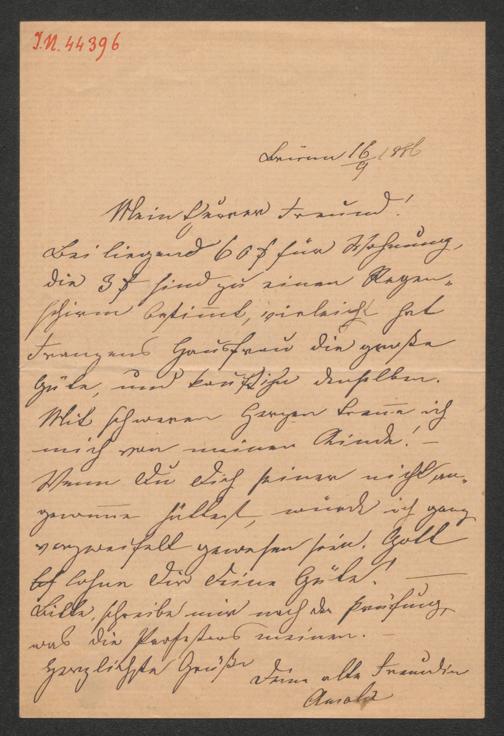 I.N. 44396
Brünn 16/9 1886
Mein theurer Freund!
Beiliegend 60 f für Wohnung,
die 3 f sind zu einen Regen-
schirm bestimmt, vieleicht hat
Franzens Hausfrau die große
Güte, und kauft ihn denselben.
Mit schweren Herzen trenne ich
mich von meinen Kinde! –
Wenn Du Dich seiner nicht an-
genomme hättest, würde ich ganz
verzweifelt gewesen sein. Gott
lohne Dir Deine Güte! —
Bitte, schreibe mir nach der Prüfung,
was die Profesors meinen. –
Herzlichste Grüße Deine alte Freundin